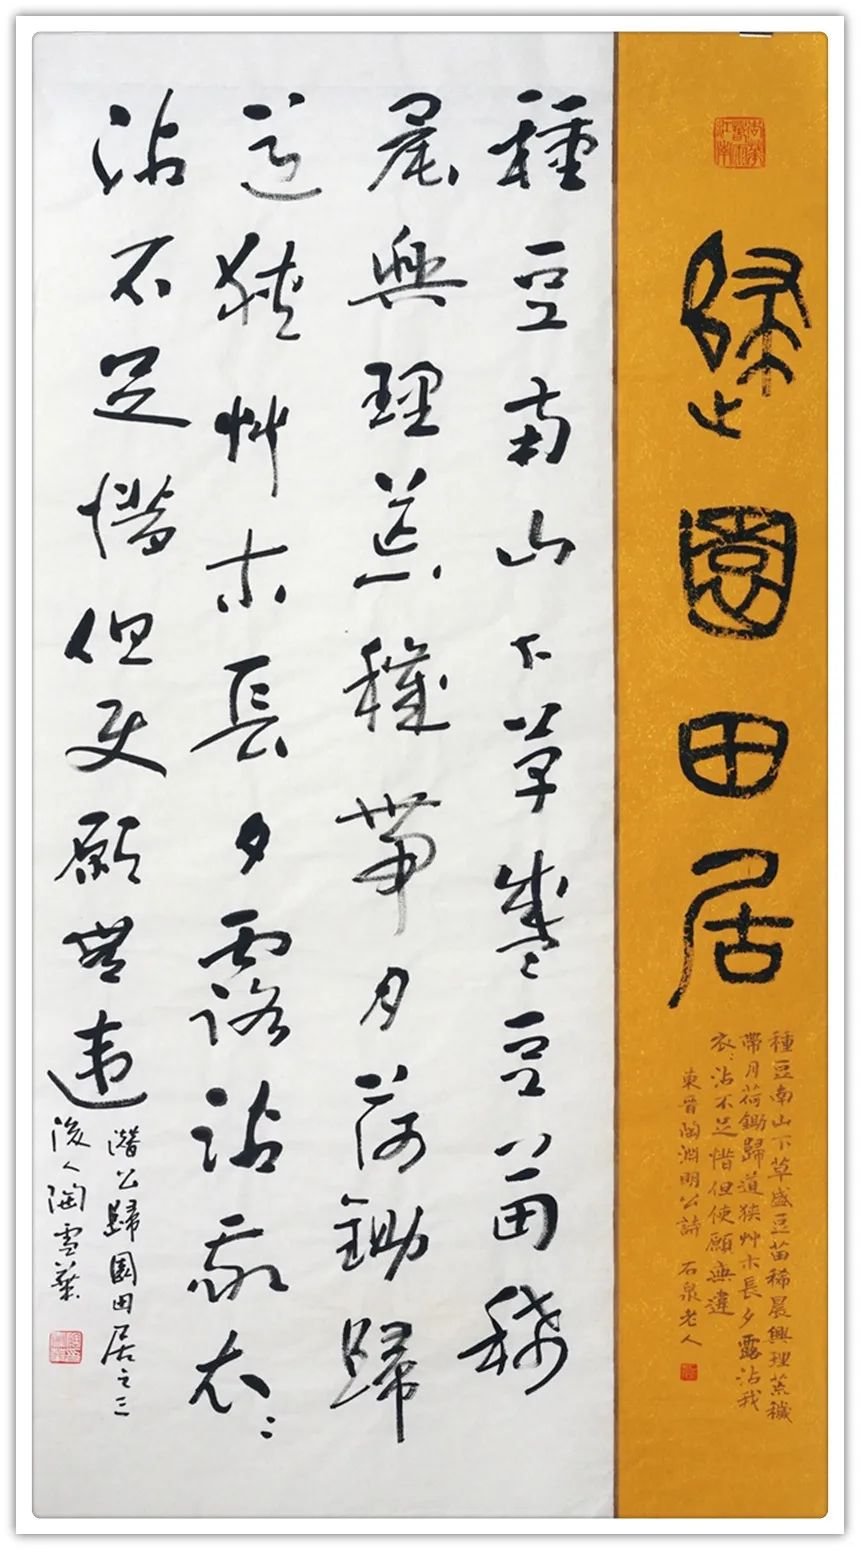 歸園田居
種豆南山下草盛豆苗稀晨興理荒穢
帶月荷鋤歸道狹艸木長夕露沾我
衣〻沾不足惜但使願無違
東晉陶淵明公詩 石泉老人
種豆南山下草盛豆苗稀
晨興理荒穢帶月荷鋤歸
道狹艸木長夕露沾我衣〻
沾不足惜但使願無違
潛公歸園田居之三
後人陶雪華